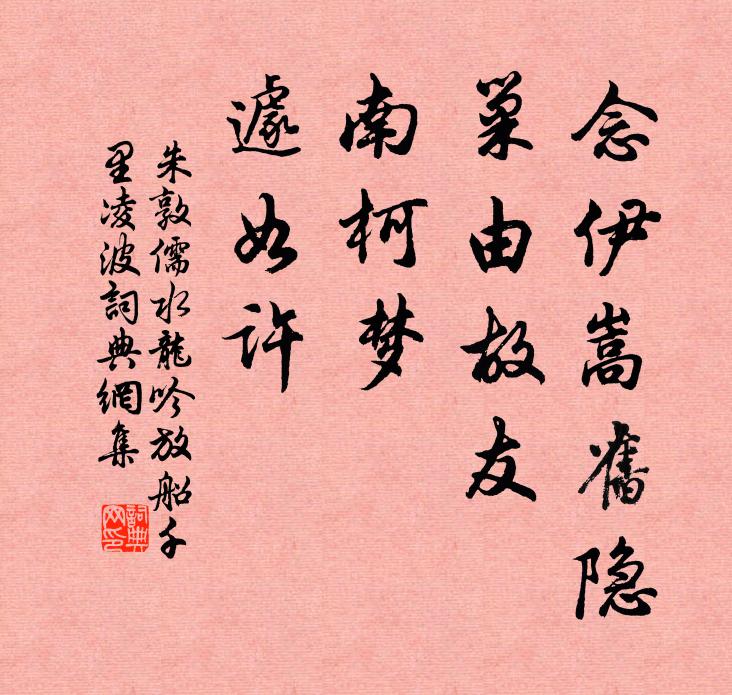 念伊嵩舊隐
巢由故友
南柯梦
遽如许
朱敦儒水龍吟放船千
里凌波詞典網集
詞典网印